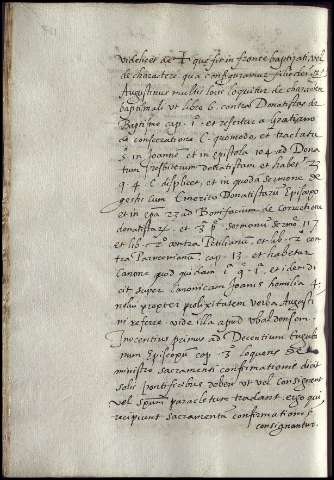 videlicet de ✝ que fit in fronte baptizati vel
de charactere qua configuramur filio dei
Augustinus multis locis loquitur de charactere
baptismali ut libro 6. contra Donatistas de
Baptismo cap. 1. et refertur a gratiano
de consecratione C. quomodo, et tractatu
5. in Joannis et in epistola 104 ad Dona
tum presbiterum donatistam et habet 23
q. 4. C. displicet, et in quodam sermone de
gestis cum Emerito Donatistarum Episcopo
et in epa 23 ad Bonifacium de correctione
donatistarum. et 3. sermonum sermo 117
et lib. 2º contra Petilianum, et lib. 2º con
tra Parmenianum cap. 13. et habetur
canone quod quidam 1ª q. 1. et idem di
cit super canonicam Joannis homilia 4.
propter prolixitatem verba Augusti
ni referre vide illa apud ubaldensem
Innocentius primus ad Decentium Eugubi
num Episcopum cap. 3 loquens de
ministro sacramenti confirmationis dicit
solis pontificibus deberi ut vel consignent
vel spum paracletum tradant. ergo qui
recipiunt sacramentum confirmationis
consignantur.